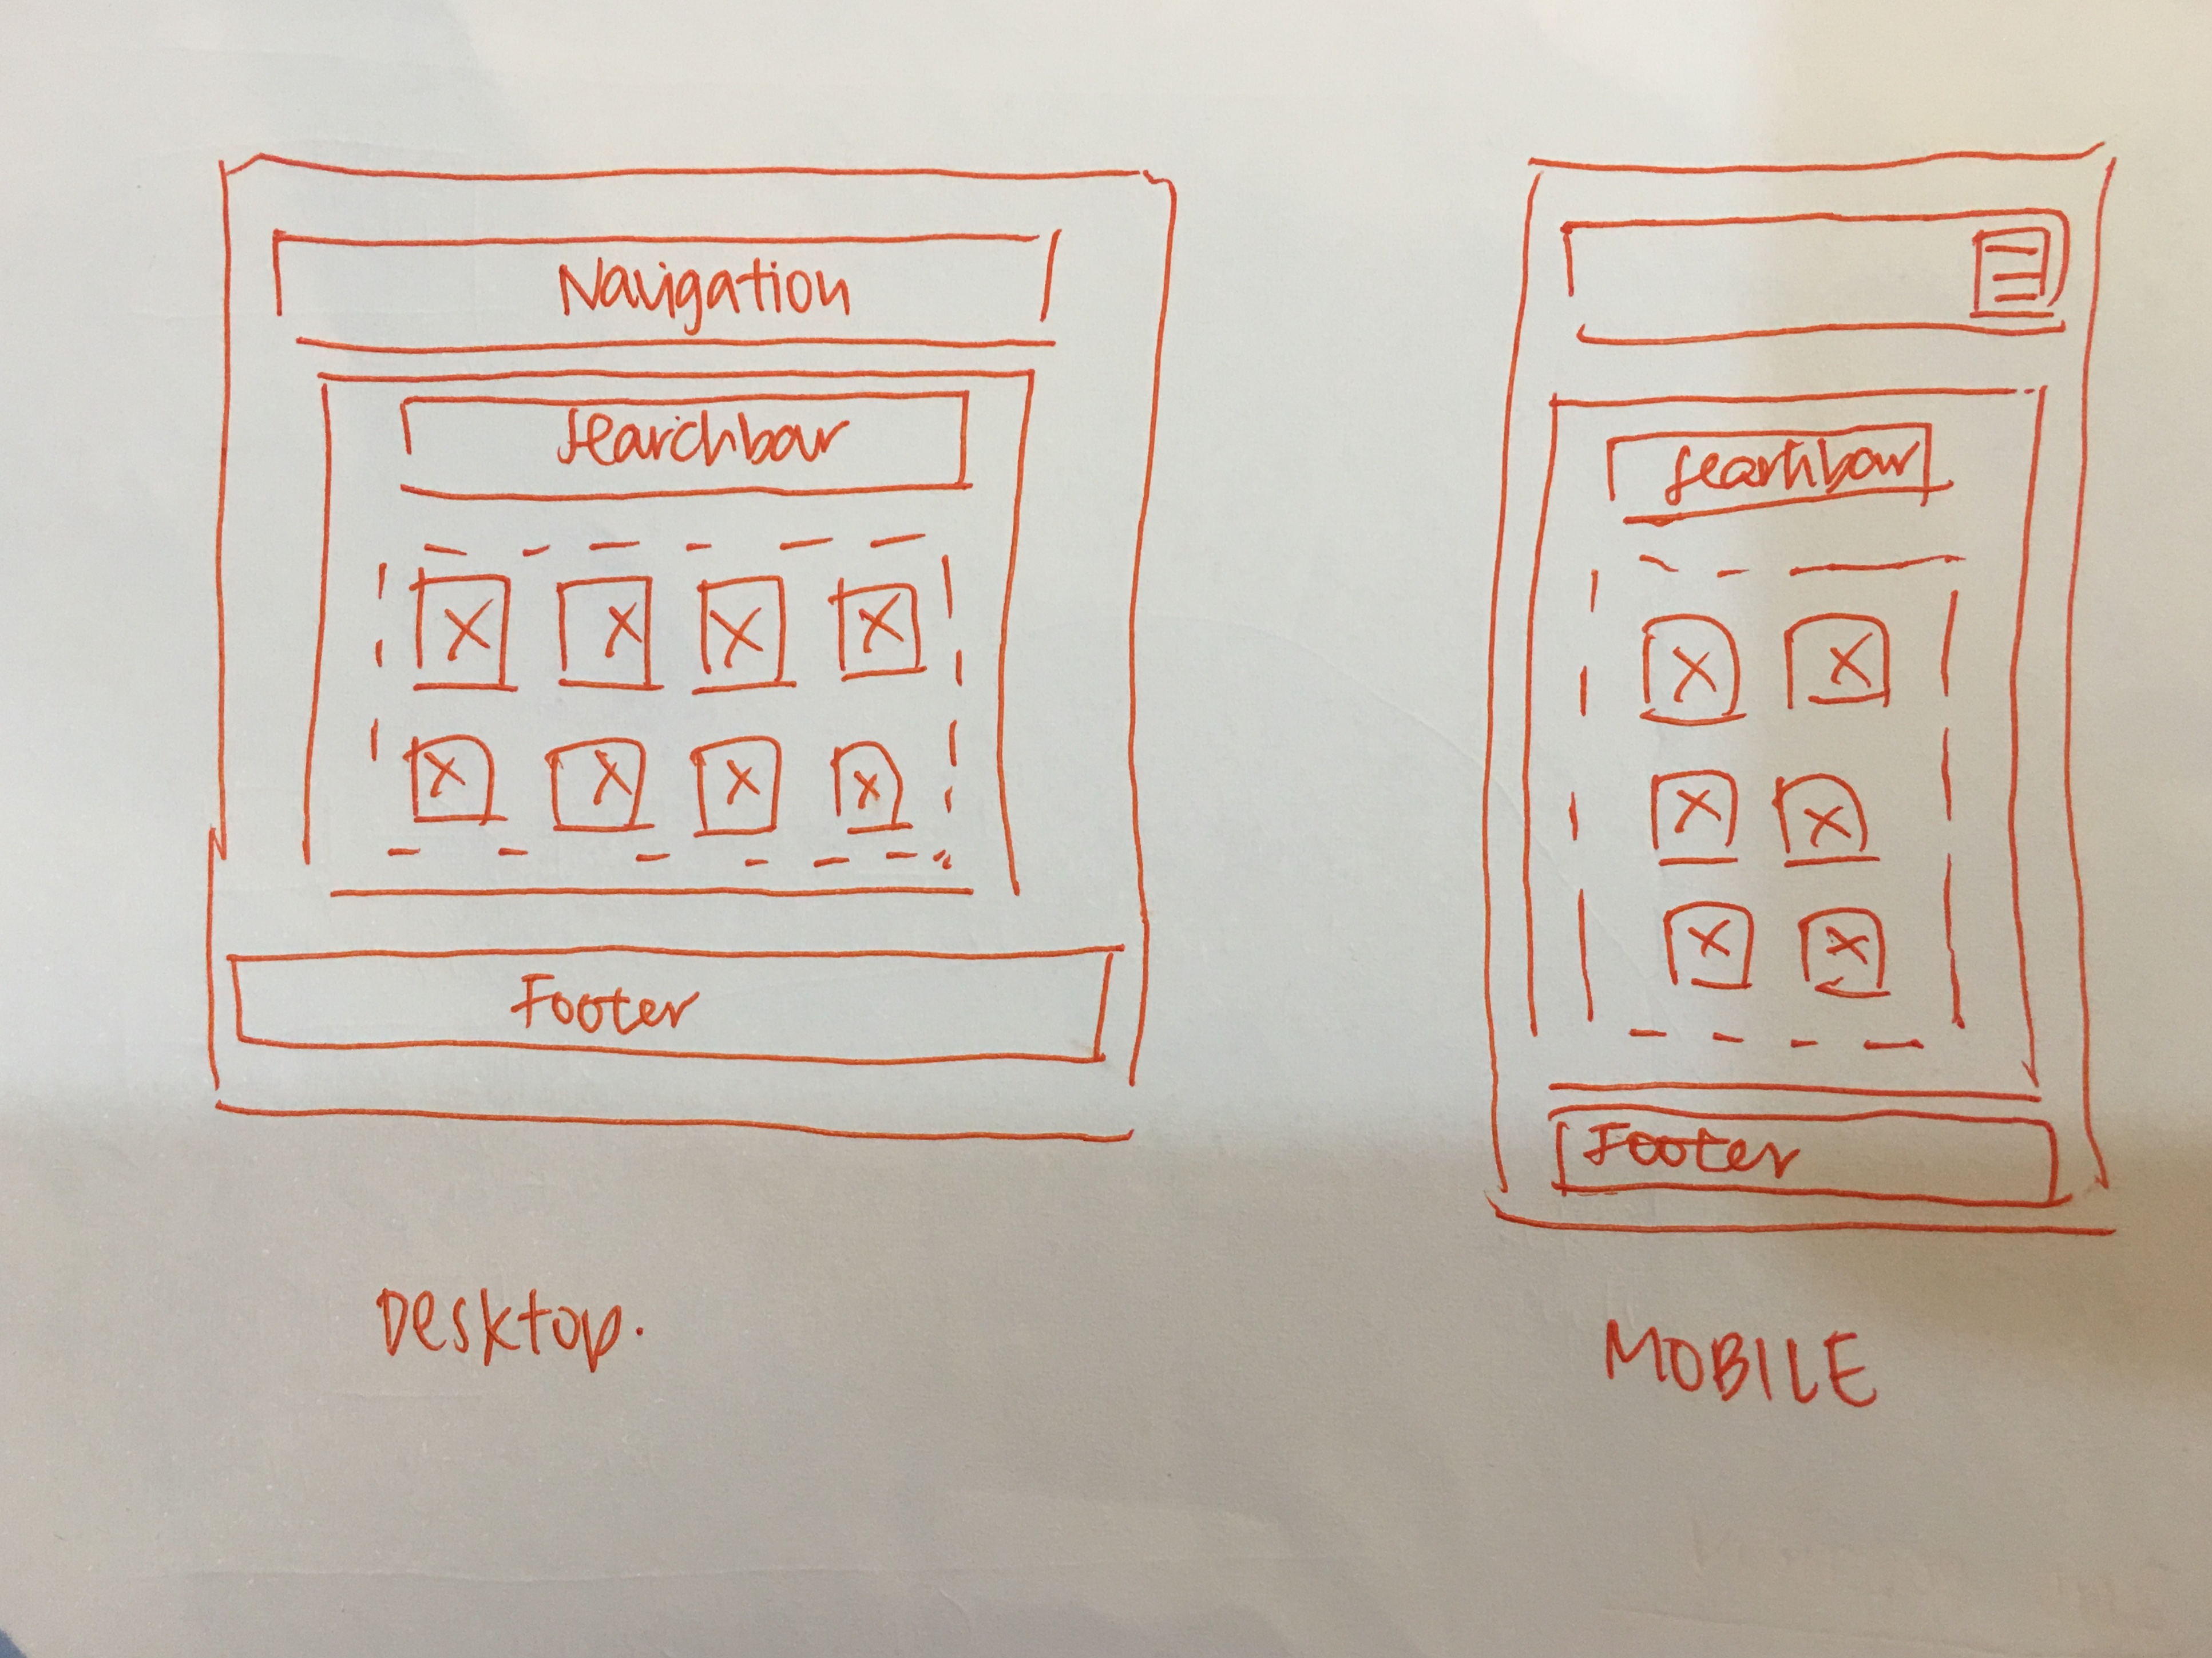 Navigation
Searchbar
Footer
Desktop.
Searchbar
Footer
MOBILE